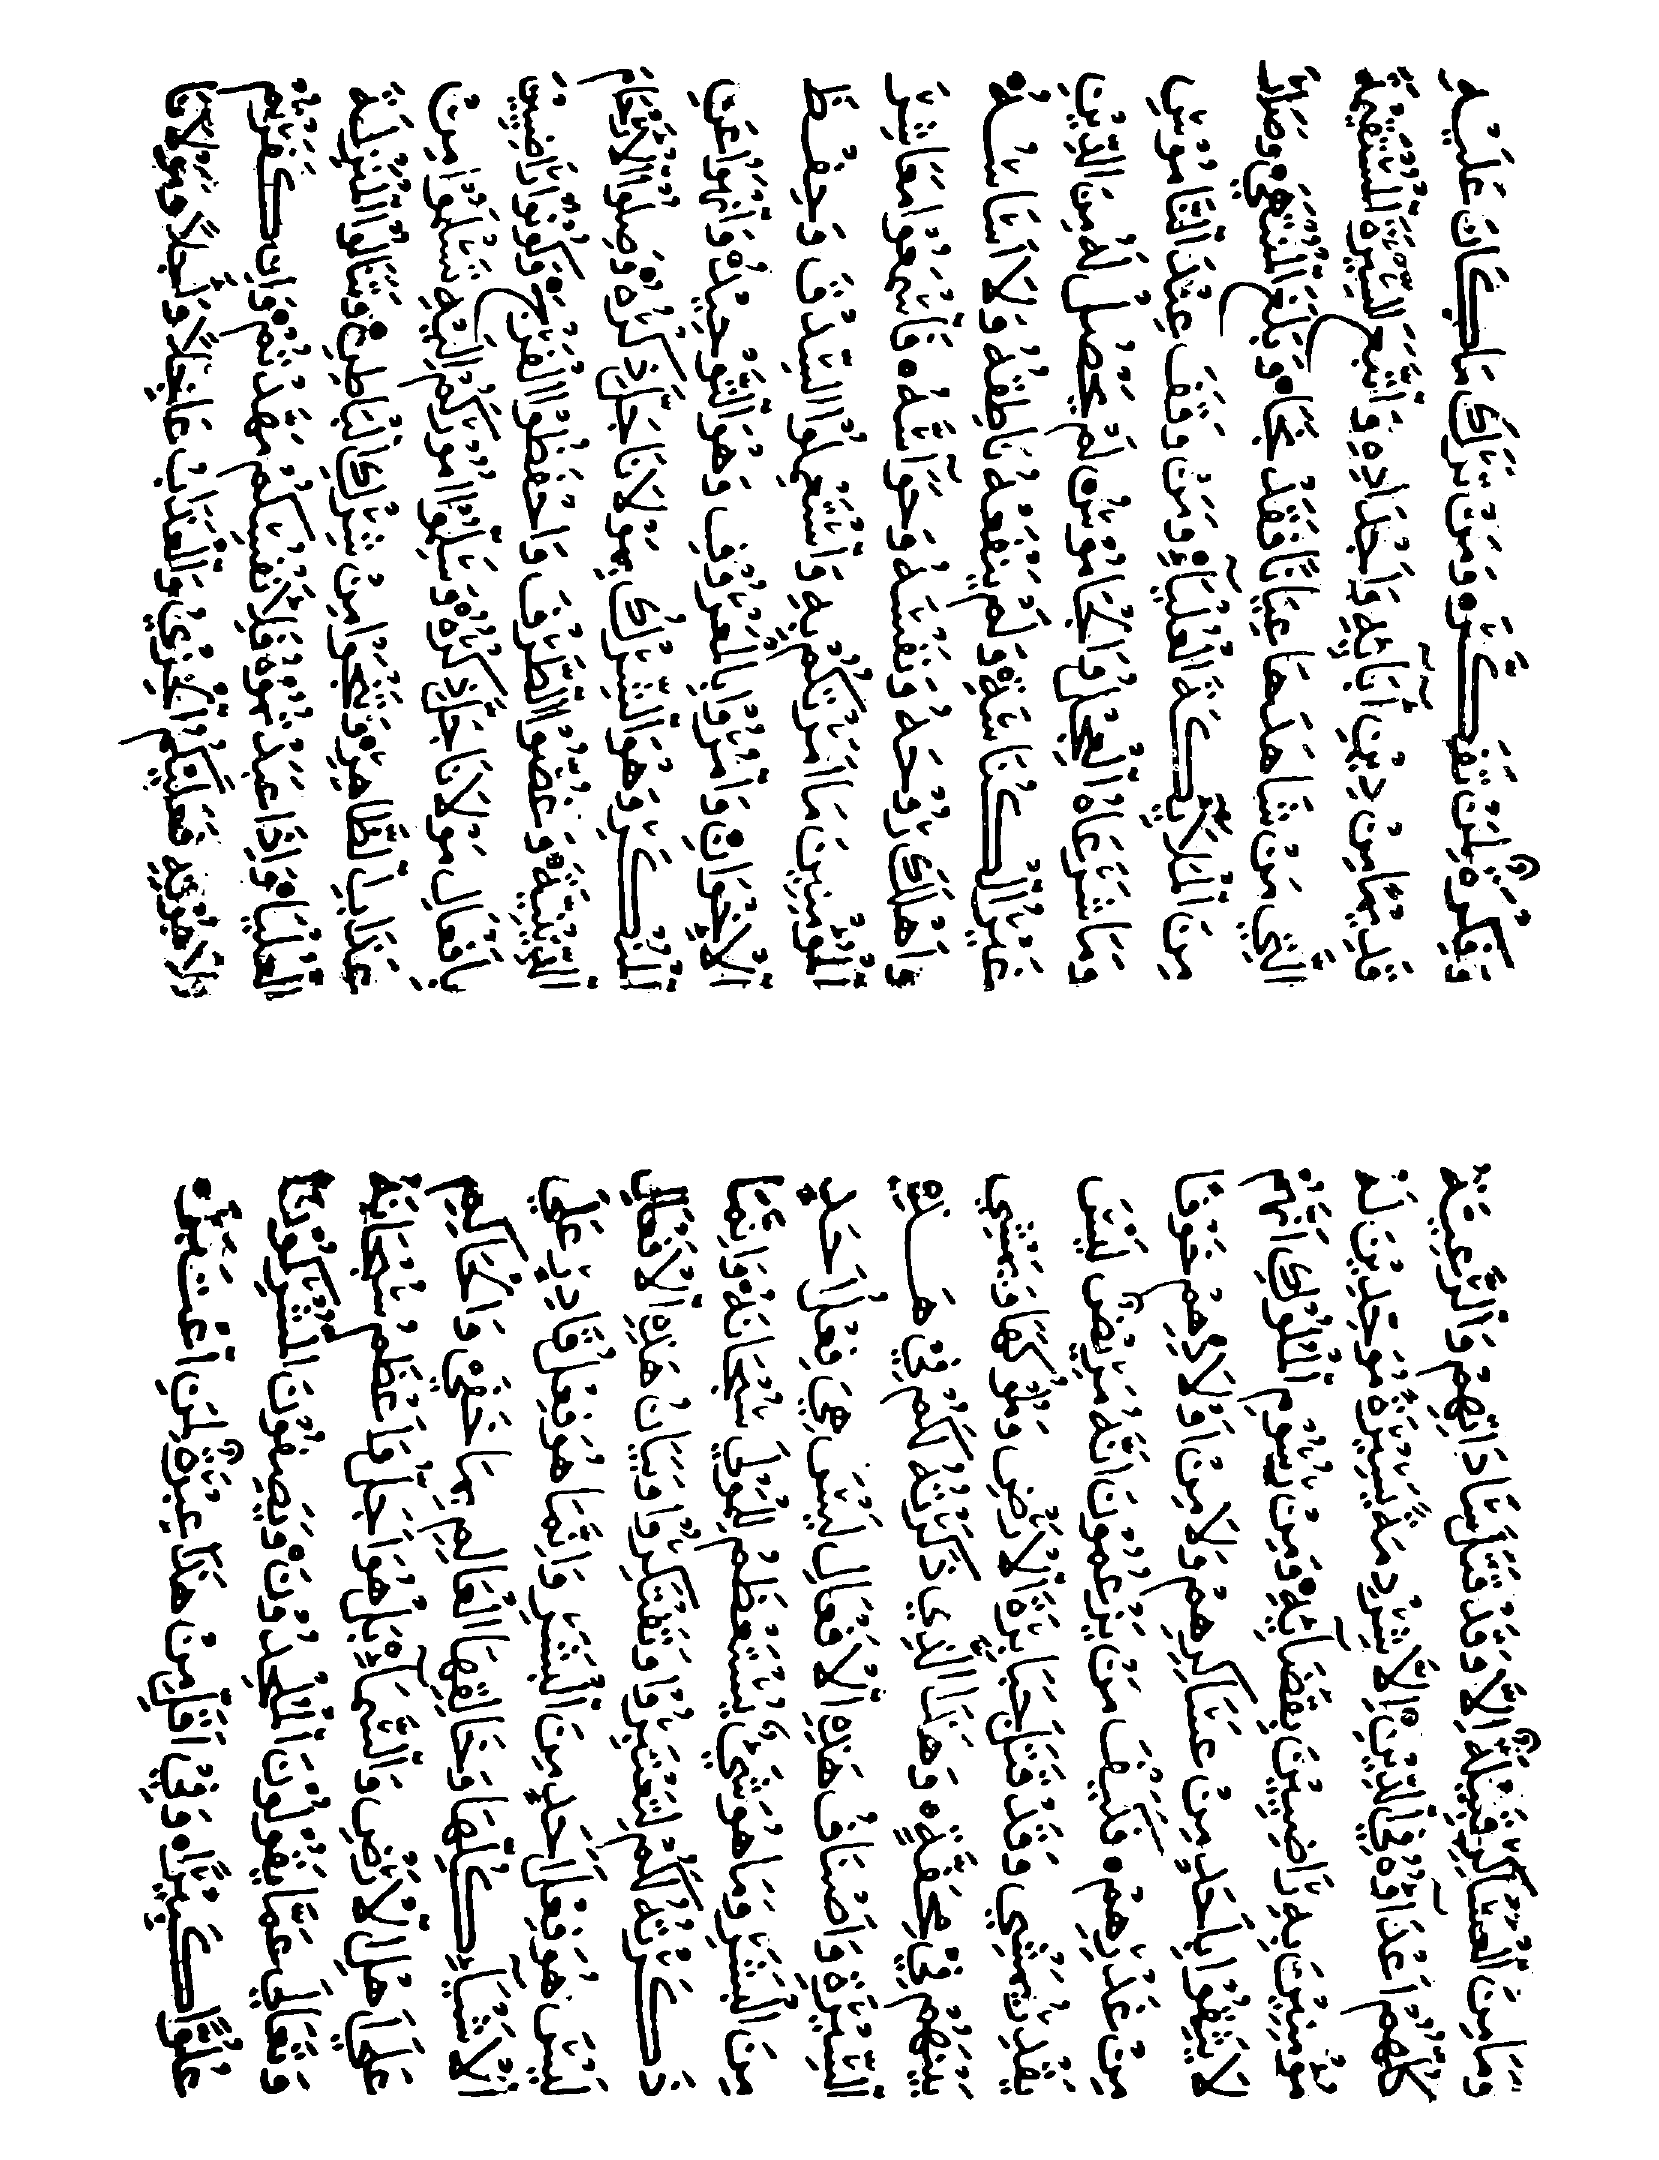 وَمَا مِنَ الْعَسَاكِرِ قَبِيْلَةٌ اِلَّا وَقَدْ قَتَلَ سَادَاتِهِمْ وَالرَّعِيَّةُ
كُلُّهُمْ اَعْدَاؤُهُ فِي الدِّيْنِ اِلَّا شِرْذِمَةً يَسِيْرَةً مُوَحِّدِيْنَ لَهُ
مُؤْمِنِيْنَ بِهِ رَاضِيِيْنَ بِقَضَآئِهِ وَمِنْ رُسُوْمِ الْمُلُوْكِ اَنَّهُمْ
لَا يَثِقُوْا بِاَحَدٍ مِنْ عَسَاكِرِهِمْ وَلَا مِنْ اَوْلَادِهِمْ خَوْفًا
مِنْ غَدْرِهِمْ فَكَيْفَ مَنْ يَزْعَمُوْنَ اَنَّهُ مَرِيْضٌ لَيْسَ
يَقْدِرُ يَمْشِي وَقَدْ قَتَلَ جَبَابِرَةَ الْاَرْضِ وَمُلُوْكَهَا وَيَمْشِي
بَيْنَهُمْ فِي مِحَفَّةٍ وَهَذَا الَّذِي ذَكَرْتُهُ لَكُمْ فِيْ هَذِهِ
السِّيْرَةِ وَاَصْنَافُ هَذِهِ الْاَفْعَالِ لَيْسَ هِيَ فِعْلُ اَحَدٍ
مِنَ الْبَشَرِ وَمَا هُوَ شَيْءٌ يُسْتَعْظَمُ لِلْمَوْلَى سُبْحَانَهُ وَاِنَّمَا
ذَكَرْتُهُ لَكُمْ لِتَعْتَبِرُوْا وَتَفْتَكِرُوْا وَبَيَانُ هَذِهِ الْاَفْعَالِ
لَيْسَ هُوَ فِعْلُ اَحَدٍ مِنَ الْبَشَرِ وَاِنَّمَا هُوَ فِعْلُ قَادِرٍ عَلَى
الْاَشْيَآءِ كُلِّهَا وَخَالِقِهَا الْعَالِمِ بِمَا خَفِيَ وَالْحَاكِمِ
عَلَى اَهْلِ الْاَرْضِ وَالسَّمَآءِ بَلْ هُوَ اَجَلُّ وَاَعْظَمُ سُبْحَانَهُ
وَتَعَالَى عَمَّا يَقُوْلُوْنَ الْمُلْحِدُوْنَ وَيَصِفُوْنَ الْمُشْرِكُوْنَ
عُلُوًّا كَبِيْرًا وَفِيْ اَقَلِّ مِنْ هَذَا عِبْرَةٌ لِمَنِ اعْتَبَرَ
وَفِكْرَةٌ لِمَنْ تَفَكَّرَ وَمَنْ تَرَكَ مَا كَانَ عَلَيْهِ
قَدِيْمًا مِنْ دِيْنِ اَبَآئِهِ وَاَجْدَادِهِ وَاتَّبَعَ السِّيْرَةَ الْمُسْتَقِيْمَةَ
الَّتِي مَنْ شَاهَدَهَا عِيَانًا فَقَدْ نَجَا وَبَلَغَ الْمُنْتَهَى وَصَارَ
مِنَ الْمَلَائِكَةِ الْعُلْيَآءِ وَمَنْ وَقَفَ عِنْدَ النَّامُوْسِ
وَمَا شَرَعَاهُ الْعِجْلُ وَالْجَامُوْسُ لَمْ يَحْصُلْ لَهُ مِنَ الدِّيْنِ
غَيْرُ الْكُنَاسَةِ وَلَمْ يَنْفَعْهُ نَاطِقُهُ وَلَا اَسَاسُهُ
وَاَهْلَكَ رُوْحَهُ وَنَفْسَهُ وَحَوَآسَّهُ فَاسْمَعُوْا مَعَاشِرَ
الْمُؤْمِنِيْنَ مَا اَمَرْتُكُمْ بِهِ وَاسْتَعْمِلُوْا السِّدْقَ وَحِفْظَ
الْاِخْوَانِ وَامُرُوْا بِالْمَعْرُوْفِ وَهُوَ التَّوْحِيْدُ وَانْهَوْا عَنِ
الْمُنْكَرِ وَهُوَ الشِّرْكُ بِمَوْلَانَا جَلَّ ذِكْرُهُ وَصِلُوْا الْاَرْحَامَ
الدِّيْنِيَّةَ وَغُضُّوْا الطَّرْفَ وَاحْفَظُوْا الْفَرْجَ وَكُوْنُوْا رَاضِيِيْنَ
بِاَفْعَالِ مَوْلَانَا جَلَّ ذِكْرُهُ وَسَلِّمُوْا اُمُوْرَكُمْ اِلَيْهِ تَسْلَمُوْا مِنْ
عَذَابِ الظَّاهِرِ وَتَنْجُوْا مِنْ شِرْكِ الْبَاطِنِ وَتَنَالُوْا الْمَنْزِلَةَ
الْعُلْيَا وَاِذَا عَبَدْتُمُوْهُ فَلِاَنْفُسِكُمْ مَهَّدْتُمْ وَاِنْ كَفَرْتُمْ
بِلَاهُوْتِهِ فَعَلَيْكُمُ الْخِزْيُ وَالْعَذَابُ عَاجِلًا وَاَجِلًا وَمَوْلَانَا